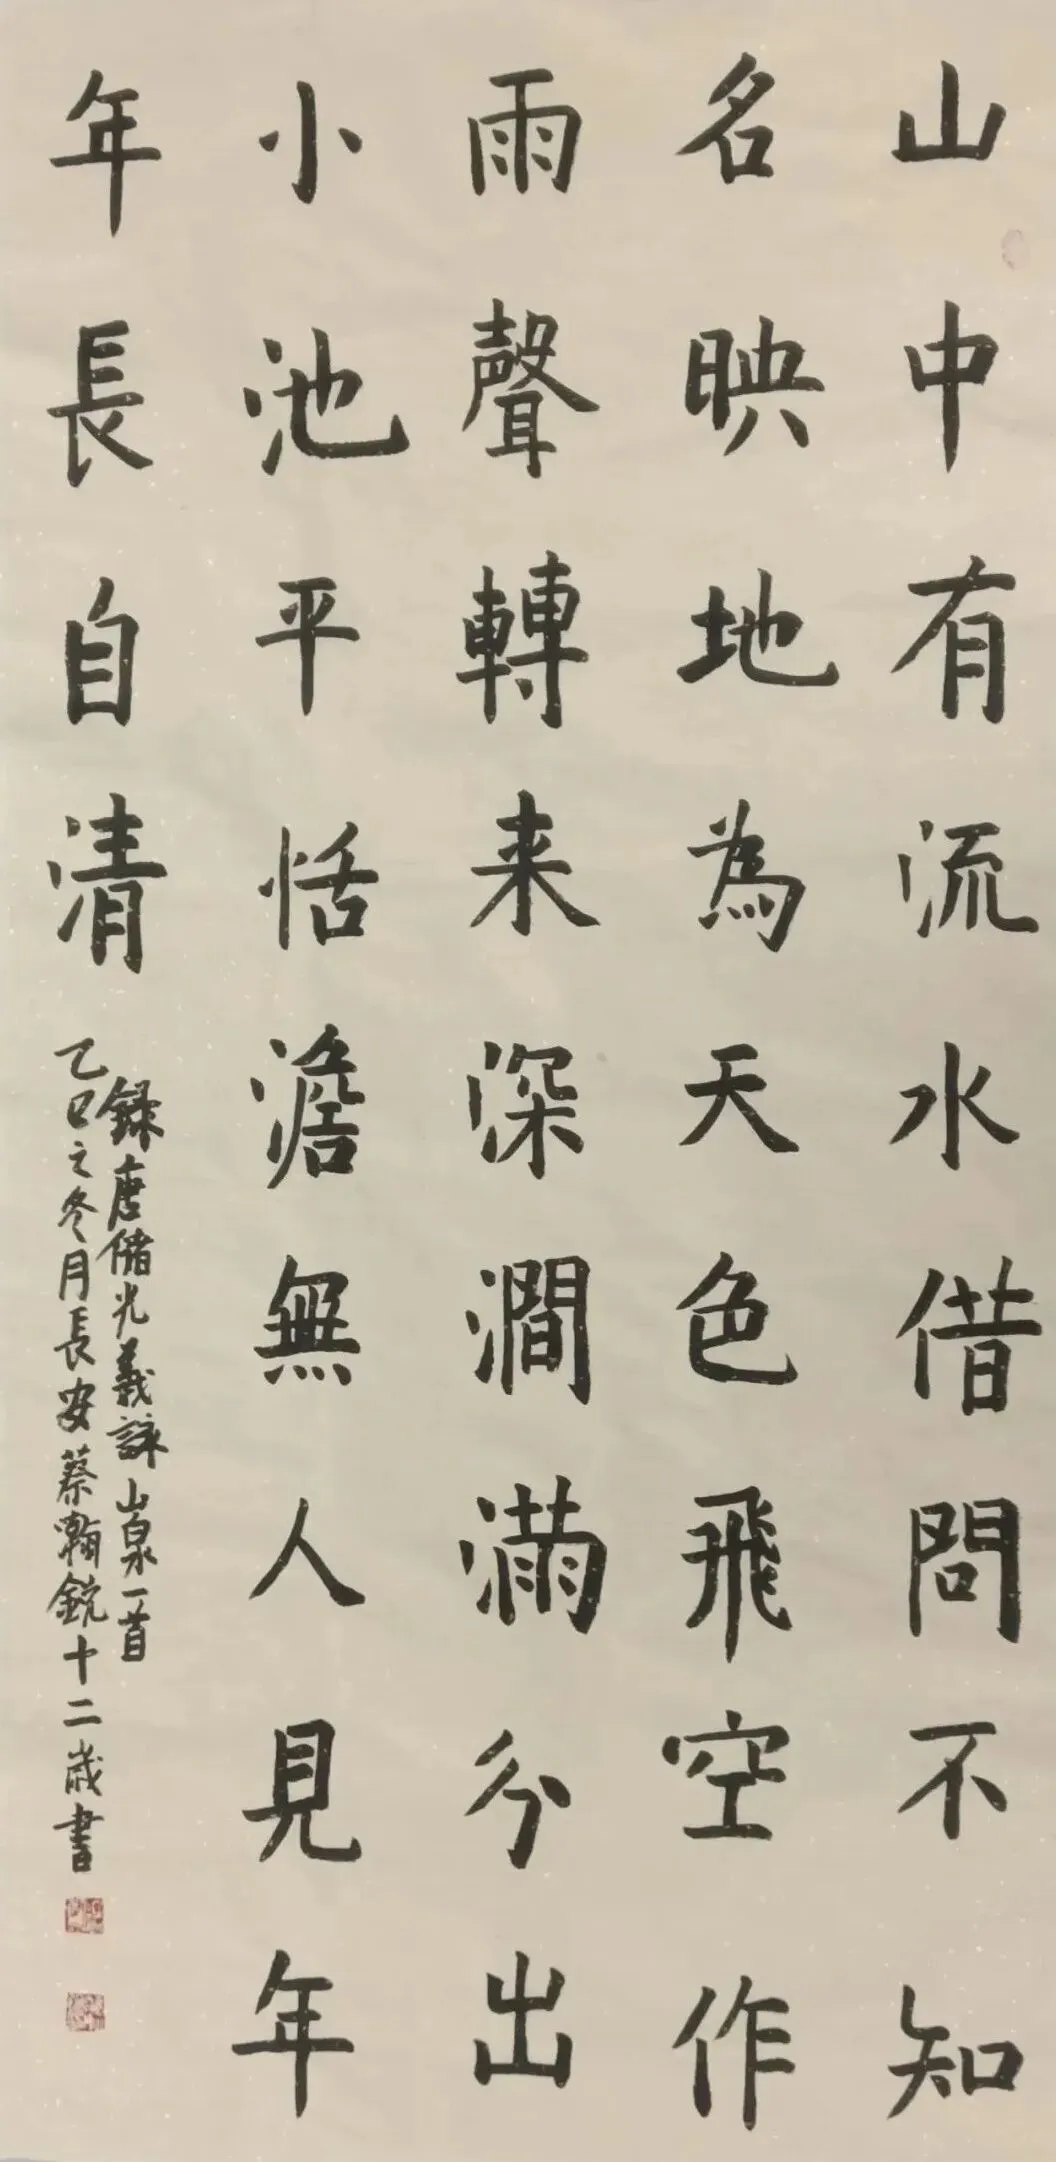 山中有流水借問不知
名映地為天色飛空作
雨聲轉来深澗滿分出
小池平恬澹無人見年
年長自清
録唐儲光羲詠山泉一首
乙巳之冬月長安蔡瀚銳十二歲書